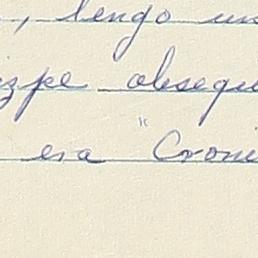 , tengo un
zpe obsequ
era "Croni